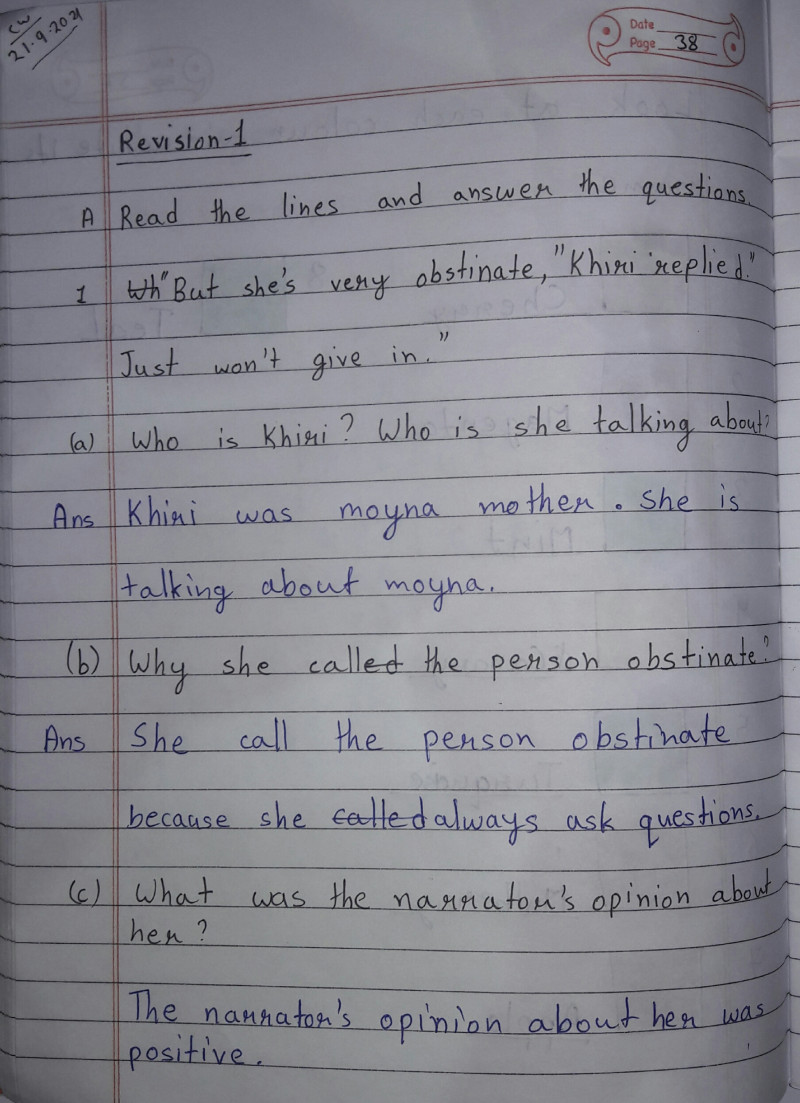 CW
21.9.2021
Date
Page 38
Revision-1
A Read the lines and answer the questions.
1 Wh "But she's very obstinate," Khiri replied."
Just won't give in."
(a) Who is Khiri? Who is she talking about?
Ans Khiri was moyna mother. She is
talking about moyna.
(b) Why she called the person obstinate?
Ans She call the person obstinate
because she called always ask questions.
(c) What was the narrator's opinion about
her?
The narrator's opinion about her was
positive.